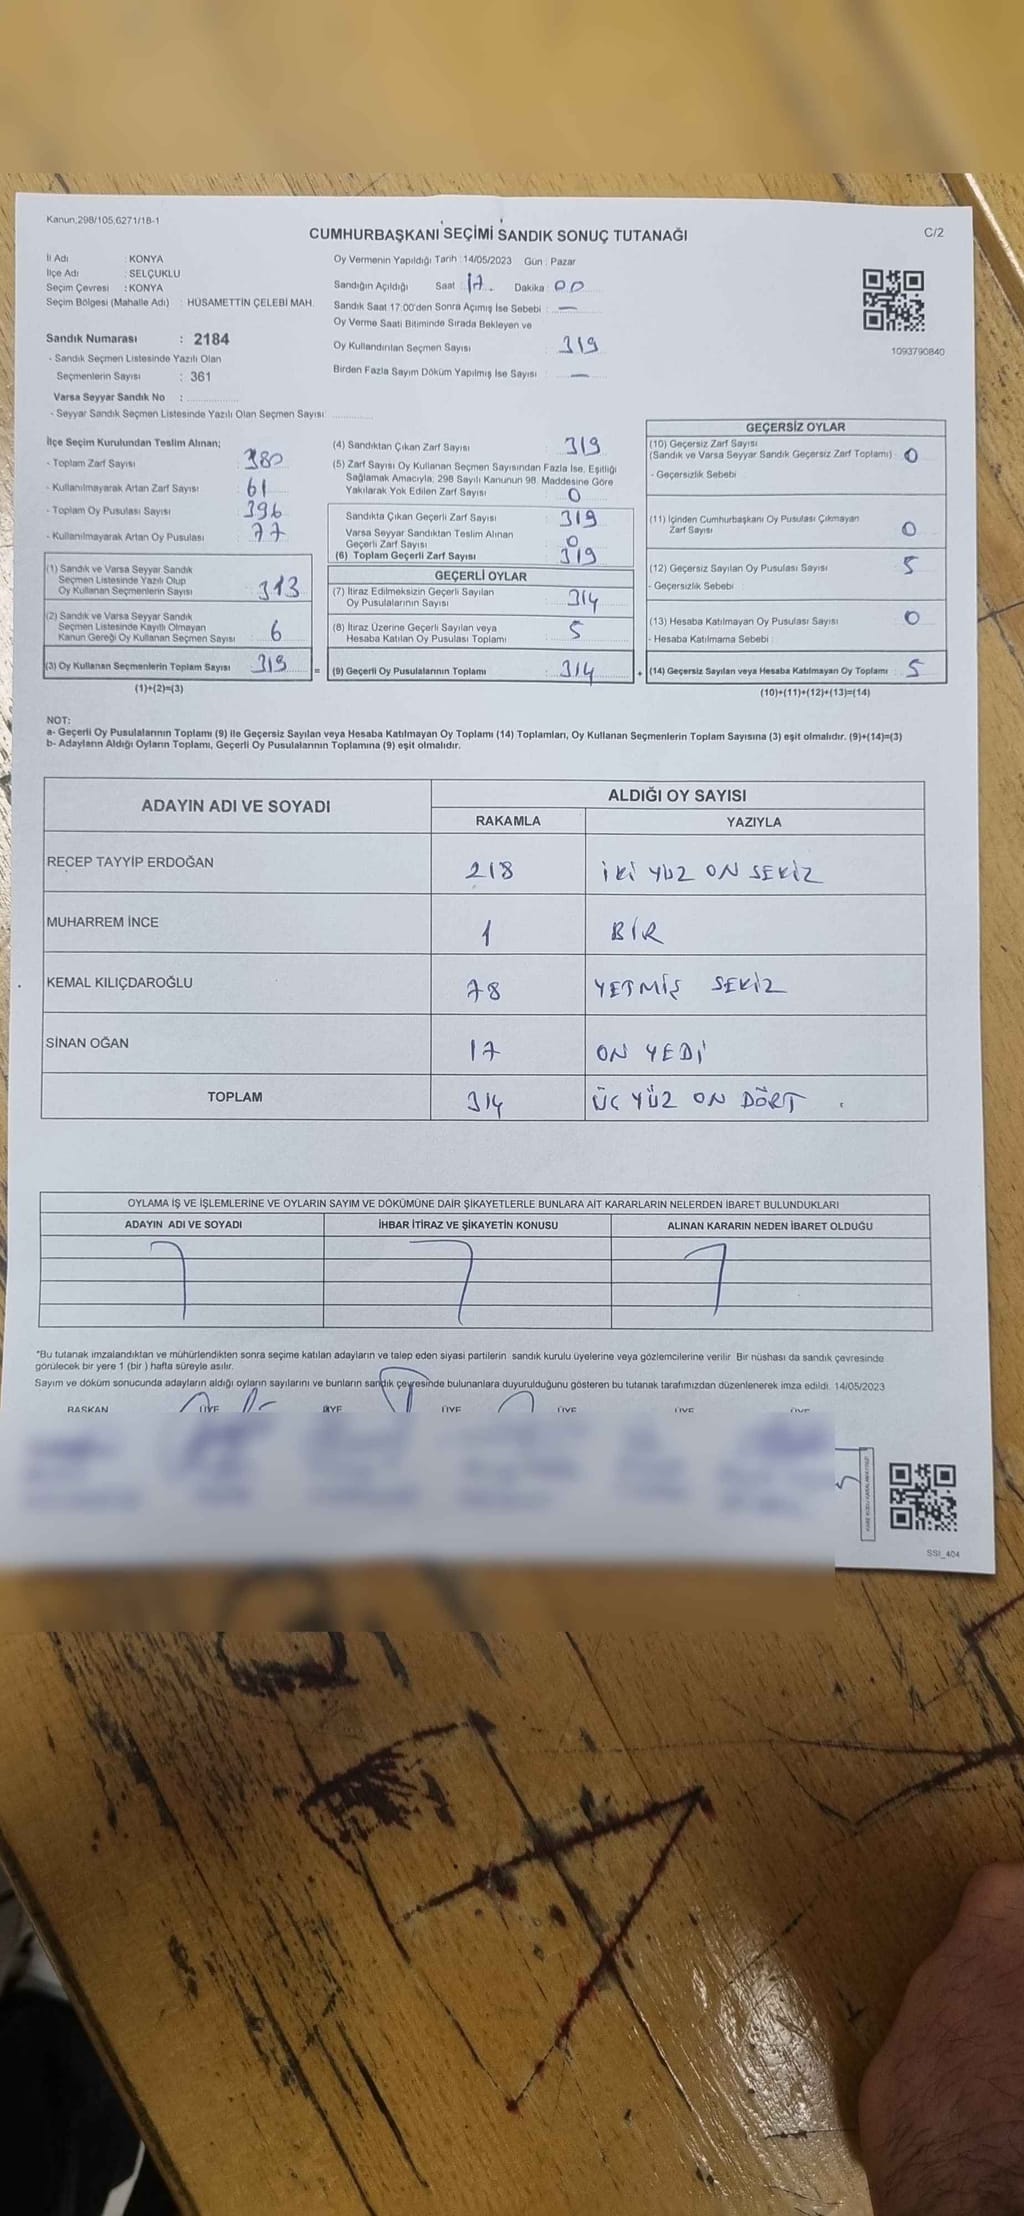 Kanun,298/105,6271/18-1
CUMHURBAŞKANI SEÇİMİ SANDIK SONUÇ TUTANAĞI
C/2
İl Adı : KONYA
İlçe Adı : SELÇUKLU
Seçim Çevresi : KONYA
Seçim Bölgesi (Mahalle Adı) : HÜSAMETTİN ÇELEBİ MAH.
Sandık Numarası : 2184
- Sandık Seçmen Listesinde Yazılı Olan
Seçmenlerin Sayısı : 361
Varsa Seyyar Sandık No :
- Seyyar Sandık Seçmen Listesinde Yazılı Olan Seçmen Sayısı
Oy Vermenin Yapıldığı Tarih : 14/05/2023 Gün : Pazar
Sandığın Açıldığı Saat : 17. Dakika : 00
Sandık Saat 17:00'den Sonra Açımış İse Sebebi : —
Oy Verme Saati Bitiminde Sırada Bekleyen ve
Oy Kullandırılan Seçmen Sayısı : 319
Birden Fazla Sayım Döküm Yapılmış İse Sayısı : —
1093790840
İlçe Seçim Kurulundan Teslim Alınan;
- Toplam Zarf Sayısı : 380
- Kullanılmayarak Artan Zarf Sayısı : 61
- Toplam Oy Pusulası Sayısı : 396
- Kullanılmayarak Artan Oy Pusulası : 77
(1) Sandık ve Varsa Seyyar Sandık
Seçmen Listesinde Yazılı Olup
Oy Kullanan Seçmenlerin Sayısı : 313
(2) Sandık ve Varsa Seyyar Sandık
Seçmen Listesinde Kayıtlı Olmayan
Kanun Gereği Oy Kullanan Seçmen Sayısı : 6
(3) Oy Kullanan Seçmenlerin Toplam Sayısı : 319
(1)+(2)=(3)
(4) Sandıktan Çıkan Zarf Sayısı : 319
(5) Zarf Sayısı Oy Kullanan Seçmen Sayısından Fazla İse, Eşitliği
Sağlamak Amacıyla, 298 Sayılı Kanunun 98. Maddesine Göre
Yakılarak Yok Edilen Zarf Sayısı : 0
Sandıkta Çıkan Geçerli Zarf Sayısı : 319
Varsa Seyyar Sandıktan Teslim Alınan
Geçerli Zarf Sayısı : 0
(6) Toplam Geçerli Zarf Sayısı : 319
GEÇERLİ OYLAR
(7) İtiraz Edilmeksizin Geçerli Sayılan
Oy Pusulalarının Sayısı : 314
(8) İtiraz Üzerine Geçerli Sayılan veya
Hesaba Katılan Oy Pusulası Toplamı : 5
= (9) Geçerli Oy Pusulalarının Toplamı : 314 +
GEÇERSİZ OYLAR
(10) Geçersiz Zarf Sayısı
(Sandık ve Varsa Seyyar Sandık Geçersiz Zarf Toplamı) : 0
- Geçersizlik Sebebi :
(11) İçinden Cumhurbaşkanı Oy Pusulası Çıkmayan
Zarf Sayısı : 0
(12) Geçersiz Sayılan Oy Pusulası Sayısı : 5
- Geçersizlik Sebebi :
(13) Hesaba Katılmayan Oy Pusulası Sayısı : 0
- Hesaba Katılmama Sebebi :
(14) Geçersiz Sayılan veya Hesaba Katılmayan Oy Toplamı : 5
(10)+(11)+(12)+(13)=(14)
NOT:
a- Geçerli Oy Pusulalarının Toplamı (9) ile Geçersiz Sayılan veya Hesaba Katılmayan Oy Toplamı (14) Toplamları, Oy Kullanan Seçmenlerin Toplam Sayısına (3) eşit olmalıdır. (9)+(14)=(3)
b- Adayların Aldığı Oyların Toplamı, Geçerli Oy Pusulalarının Toplamına (9) eşit olmalıdır.
ADAYIN ADI VE SOYADI
ALDIĞI OY SAYISI
RAKAMLA YAZIYLA
RECEP TAYYİP ERDOĞAN 218 İKİ YÜZ ON SEKİZ
MUHARREM İNCE 1 BİR
KEMAL KILIÇDAROĞLU 78 YETMİŞ SEKİZ
SİNAN OĞAN 17 ON YEDİ
TOPLAM 314 ÜÇ YÜZ ON DÖRT
OYLAMA İŞ VE İŞLEMLERİNE VE OYLARIN SAYIM VE DÖKÜMÜNE DAİR ŞİKAYETLERLE BUNLARA AİT KARARLARIN NELERDEN İBARET BULUNDUKLARI
ADAYIN ADI VE SOYADI İHBAR İTİRAZ VE ŞİKAYETİN KONUSU ALINAN KARARIN NEDEN İBARET OLDUĞU
*Bu tutanak imzalandıktan ve mühürlendikten sonra seçime katılan adayların ve talep eden siyasi partilerin sandık kurulu üyelerine veya gözlemcilerine verilir. Bir nüshası da sandık çevresinde
görülecek bir yere 1 (bir ) hafta süreyle asılır.
Sayım ve döküm sonucunda adayların aldığı oyların sayılarını ve bunların sandık çevresinde bulunanlara duyurulduğunu gösteren bu tutanak tarafımızdan düzenlenerek imza edildi. 14/05/2023
BAŞKAN ÜYE ÜYE ÜYE ÜYE ÜYE ÜYE
SSI_404